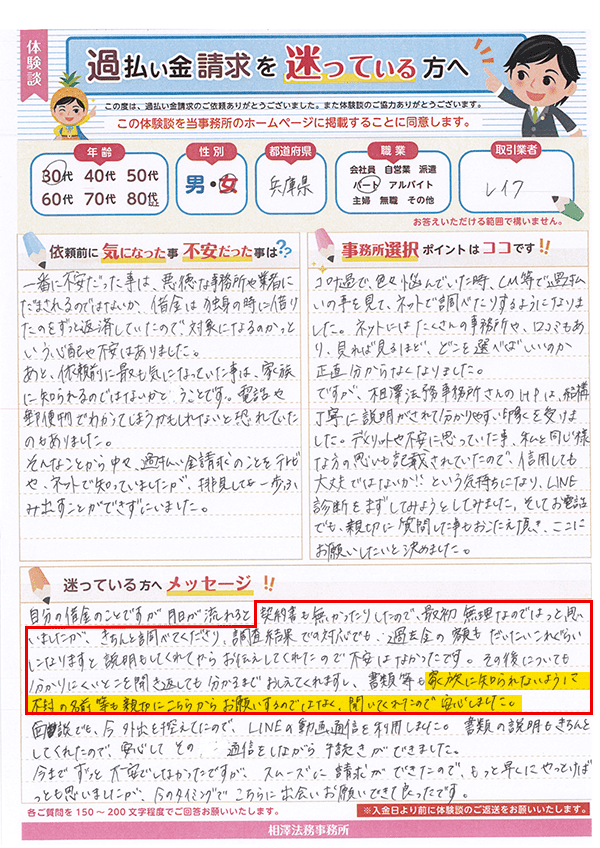 体験談
過払い金請求を迷っている方へ
この度は、過払い金請求のご依頼ありがとうございました。また体験談のご協力ありがとうございます。
この体験談を当事務所のホームページに掲載することに同意します。
年齢
30代 40代 50代
60代 70代 80代
性別
男・女
都道府県
兵庫県
職業
会社員 自営業 派遣
パート アルバイト
主婦 無職 その他
取引業者
レイク
お答えいただける範囲で構いません。
依頼前に気になった事 不安だった事は??
一番に不安だった事は、悪徳な事務所や業者に
だまされるのではないか、借金は独身の時に借り
たのをずっと返済していたので対象になるのかっと
いう心配や不安はありました。
あと、依頼前に最も気になっていた事は、家族
に知られるのではないかと、うことです。電話や
郵便物でわかってしまうかもしれないと恐れていた
のもありました。
そんなことから中々、過払い金請求のことをテレビ
や、ネットで知っていましたが、拝見しても一歩ふ
み出すことができずにいました。
事務所選択ポイントはココです!!
コロナ過で、色々悩んでいた時、CM等で過払
いの事を見て、ネットで調べたりするようになりま
した。ネットにはたくさんの事務所や、口コミもあ
り、見れば見るほど、どこを選べばいいのか
正直分からなくなりました。
ですが、相澤法務事務所さんのHPは、結構
丁寧に説明がされて分かりやすい印象を受けま
した。デメリットや不安に思っていた事、私と同じ様
な方の思いも記載されていたので、信用しても
大丈夫ではないか!!という気持ちになり、LINE
診断をまずしてみようとしてみました。そしてお電話
でも、親切に質問した事もおこたえ頂き、ここに
お願いしたいと決めました。
迷っている方へメッセージ!!
自分の借金のことですが月日が流れると契約書も無かったりしたので、最初無理なのではっと思い
いましたが、きちんと調べてくださり、調査結果での対応でも、過去金の額もだいたいこれぐらい
になりますと説明もしてくれてからお伝えしてくれたので不安はなかったです。その後についても
分かりにくいとこを聞き返しても分かるまでおしえてくれますし、書類等も家族に知られないように
の名前等も親切にこちらからお願いするのではなく、聞いてくれたので安心しました。
面談でも、今外出を控えてたので、LINEの動画通信を利用しました。書類の説明もきちんと
してくれたので、安心してその 通信をしながら手続きができました。
今までずっと不安でしかなかったですが、スムーズに請求ができたので、もっと早くにやっていけば
っとも思いましたが、今のタイミングでこちらに出会いお願いできて良ったです。
各ご質問を150〜200文字程度でご回答お願いいたします。
※入金日より前に体験談のご返送をお願いいたします。
相澤法務事務所